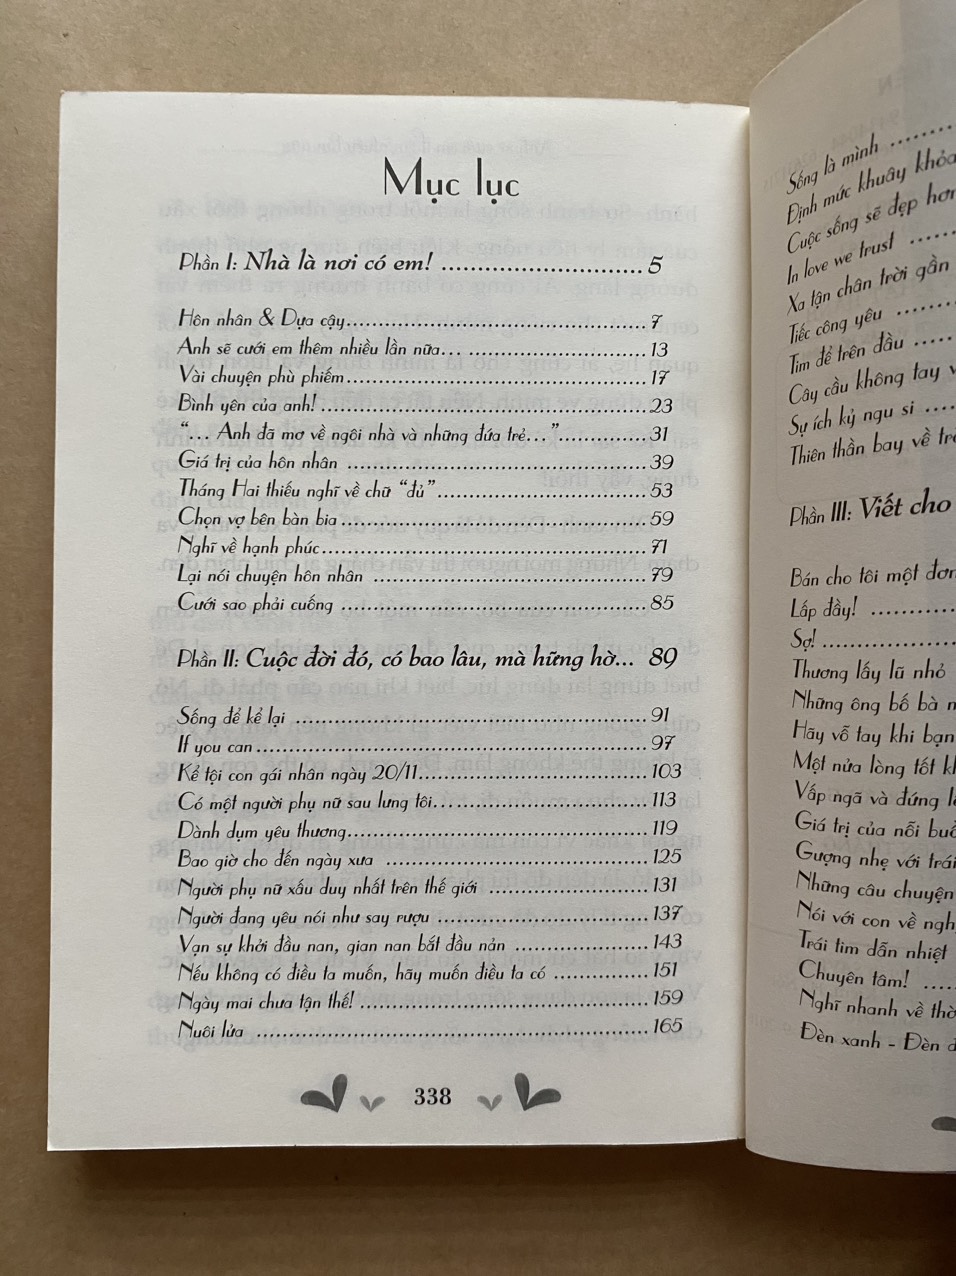 Mục lục
Phần I: Nhà là nơi có em! ............................ 5
Hôn nhân & Dựa cậy.......................................... 7
Anh sẽ cưới em thêm nhiều lần nữa... ......................... 13
Vài chuyện phù phiếm.......................................... 17
Bình yên của anh! .............................................. 23
“... Anh đã mơ về ngôi nhà và những đứa trẻ...”............. 31
Giá trị của hôn nhân .......................................... 39
Tháng Hai thiếu nghĩ về chữ “đủ”.............................. 53
Chọn vợ bên bàn bia ........................................... 59
Nghĩ về hạnh phúc.............................................. 71
Lại nói chuyện hôn nhân ....................................... 79
Cưới sao phải cuống ........................................... 85
Phần II: Cuộc đời đó, có bao lâu, mà hững hờ... 89
Sống để kể lại ................................................. 91
If you can ...................................................... 97
Kể tội con gái nhân ngày 20/11................................. 103
Có một người phụ nữ sau lưng tôi.............................. 113
Dành dụm yêu thương........................................... 119
Bao giờ cho đến ngày xưa ..................................... 125
Người phụ nữ xấu duy nhất trên thế giới ...................... 131
Người đang yêu nói như say rượu .............................. 137
Vạn sự khởi đầu nan, gian nan bắt đầu nản ................... 143
Nếu không có điều ta muốn, hãy muốn điều ta có ............. 151
Ngày mai chưa tận thế! ........................................ 159
Nuôi lửa ....................................................... 165
338
Sống là mình ........
Định mức khuây khỏa
Cuộc sống sẽ đẹp hơn
In love we trust ......
Xa tận chân trời gần
Tiếc công yêu ........
Tim để trên đầu .....
Cây cầu không tay
Sự ích kỷ ngu si ....
Thiên thần bay về
Phần III: Viết cho
Bán cho tôi một
Lấp đầy! ..........
Sợ! ................
Thương lấy lũ nhỏ
Những ông bố bà
Hãy vỗ tay khi bạn
Một nửa lòng tốt
Vấp ngã và đứng
Giá trị của nỗi
Gượng nhẹ với trái
Những câu chuyện
Nói với con về
Trái tim dẫn nhiệt
Chuyên tâm! .....
Nghĩ nhanh về
Đèn xanh - Đèn